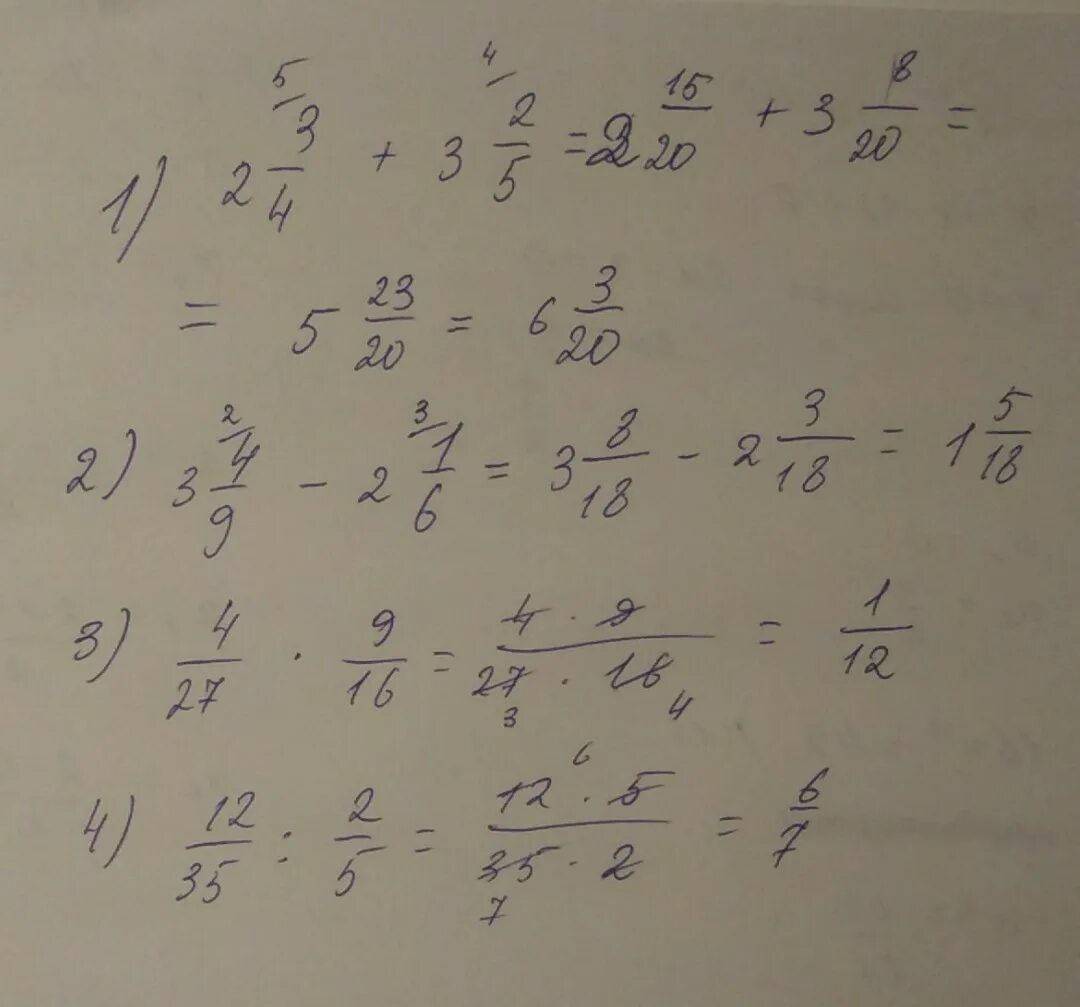 1) 2 3/4 (5/) + 3 2/5 (4/) = 2 15/20 + 3 8/20 =
= 5 23/20 = 6 3/20
2) 3 4/9 (2/) - 2 1/6 (3/) = 3 8/18 - 2 3/18 = 1 5/18
3) 4/27 · 9/16 = 4 · 9 / 27 · 16 (3, 4) = 1/12
4) 12/35 : 2/5 = 12 · 5 / 35 · 2 (6, 7) = 6/7